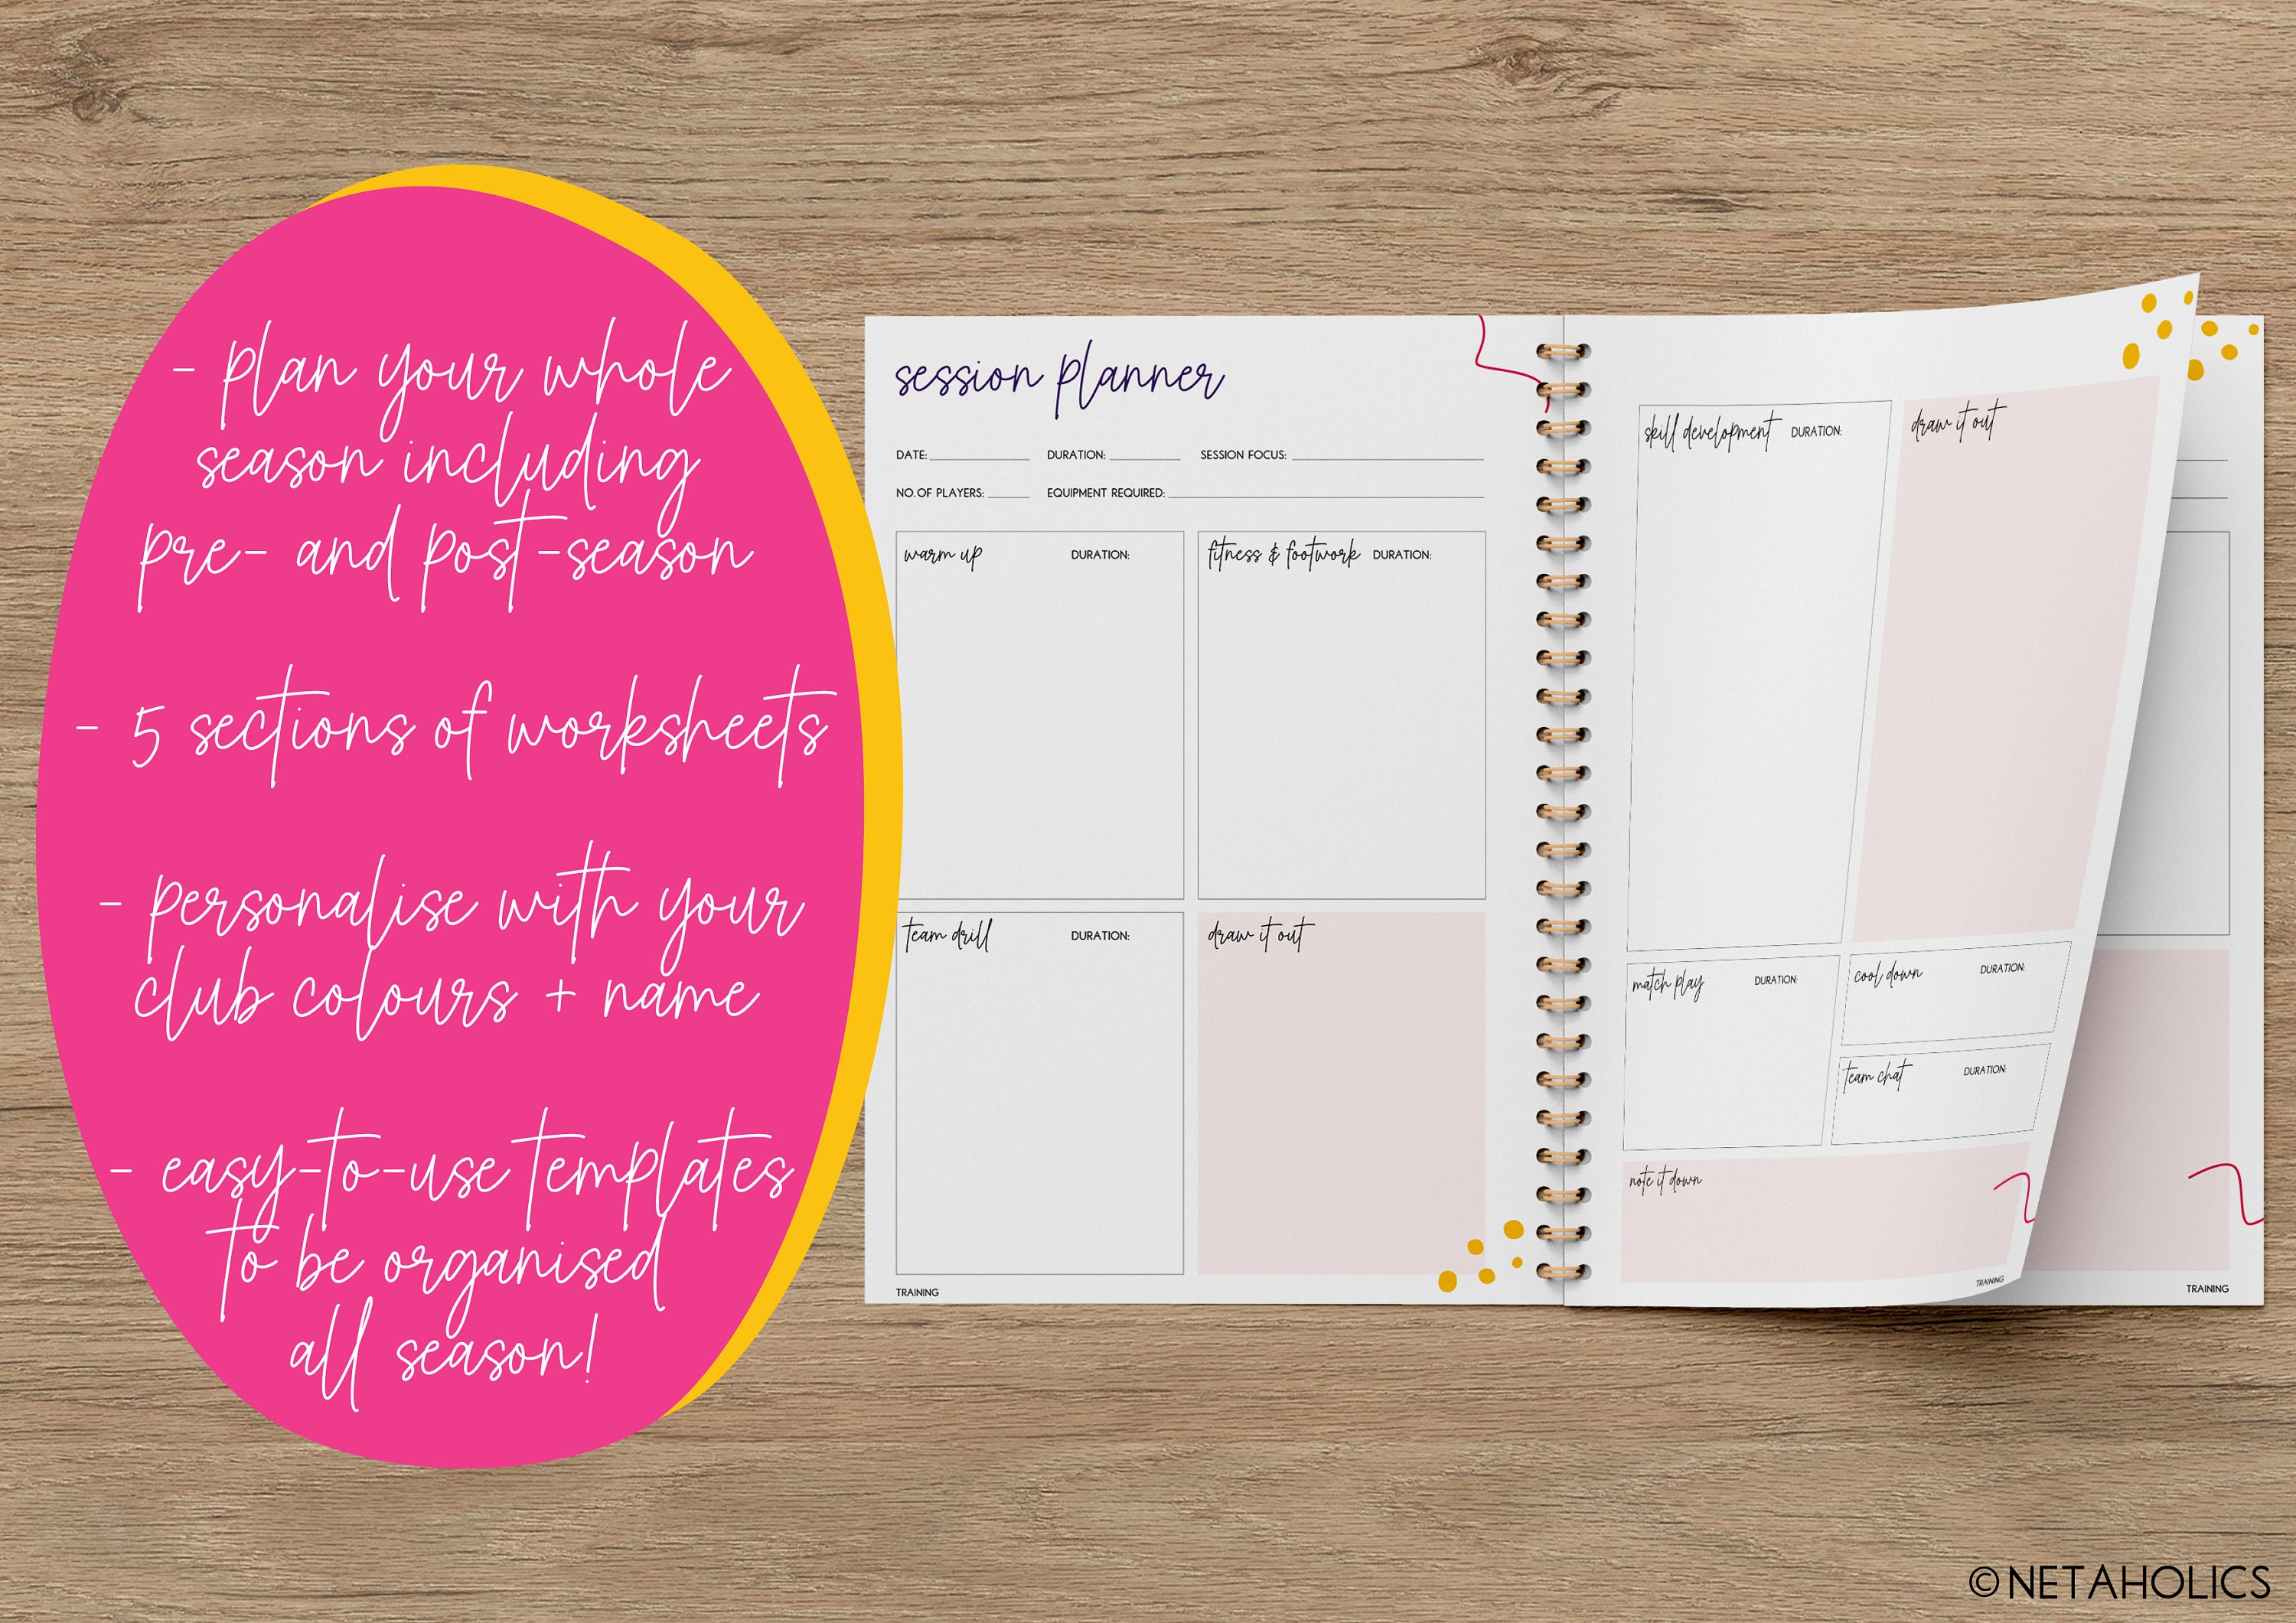 - plan your whole
season including
pre- and post-season
- 5 sections of worksheets
- personalise with your
club colours + name
- easy-to-use templates
to be organised
all season!
session planner
DATE: DURATION: SESSION FOCUS:
NO. OF PLAYERS: EQUIPMENT REQUIRED:
warm up DURATION:
fitness & footwork DURATION:
team drill DURATION:
draw it out
TRAINING
skill development DURATION:
draw it out
match play DURATION:
cool down DURATION:
team chat DURATION:
note it down
TRAINING
TRAINING
©NETAHOLICS